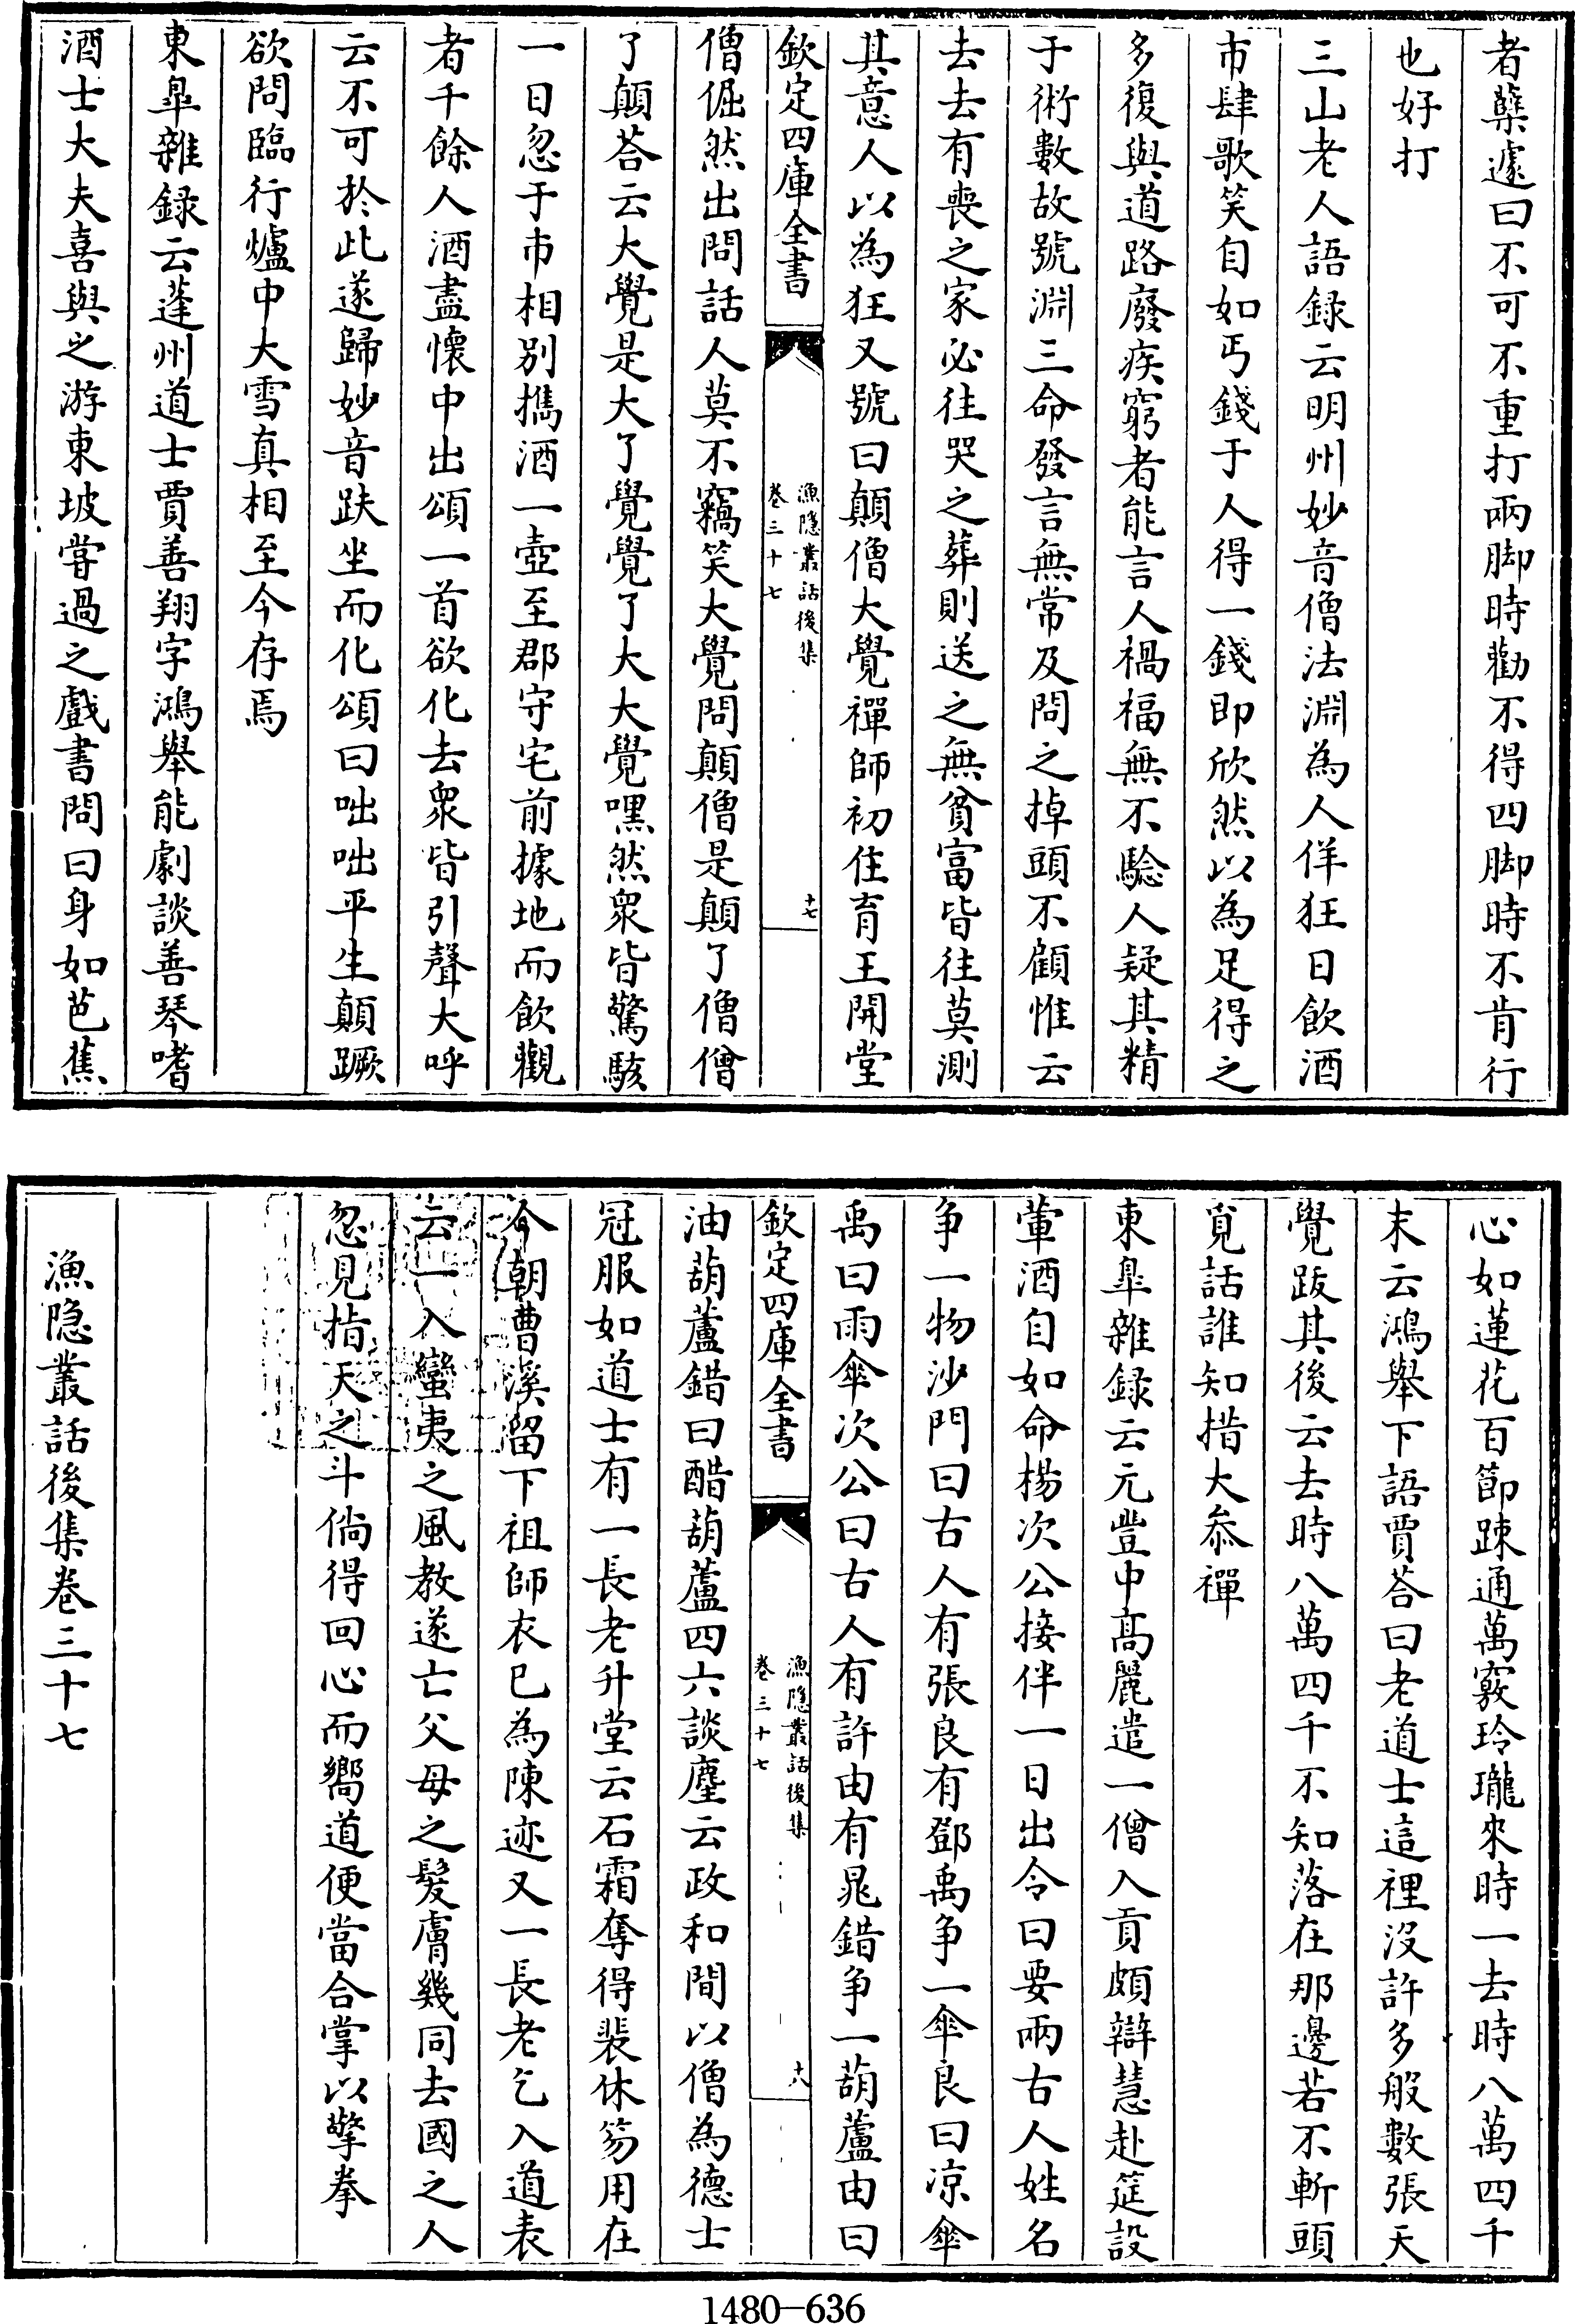 者蘖遽曰不可不重打兩脚時勸不得四脚時不肯行
也好打
三山老人語録云明州妙音僧法淵為人佯狂日飲酒
市肆歌笑自如丐錢于人得一錢即欣然以為足得之
多復與道路廢疾窮者能言人禍福無不驗人疑其精
于術數故號淵三命發言無常及問之掉頭不顧惟云
去去有喪之家必往哭之葬則送之無貧富皆往莫測
其意人以為狂又號曰顛僧大覺禪師初住育王開堂
欽定四庫全書
漁隠叢話後集
巻三十七
十七
僧倔然出問話人莫不竊笑大覺問顛僧是顛了僧僧
了顛荅云大覺是大了覺覺了大大覺嘿然衆皆驚駭
一日忽于市相别擕酒一壺至郡守宅前據地而飲觀
者千餘人酒盡懷中出頌一首欲化去衆皆引聲大呼
云不可於此遂歸妙音趺坐而化頌曰咄咄平生顛蹶
欲問臨行爐中大雪真相至今存焉
東臯雜録云蓬州道士賈善翔字鴻舉能劇談善琴嗜
酒士大夫喜與之游東坡甞過之戲書問曰身如芭蕉
心如蓮花百節疎通萬竅玲瓏來時一去時八萬四千
末云鴻舉下語賈荅曰老道士這裡沒許多般數張天
覺跋其後云去時八萬四千不知落在那邊若不斬頭
覓話誰知措大叅禪
東臯雜録云元豐中髙麗遣一僧入貢頗辯慧赴筵設
葷酒自如命楊次公接伴一日出令曰要兩古人姓名
争一物沙門曰古人有張良有鄧禹争一傘良曰凉傘
禹曰雨傘次公曰古人有許由有晁錯争一葫蘆由曰
欽定四庫全書
漁隠叢話後集
巻三十七
十八
油葫蘆錯曰醋葫蘆四六談麈云政和間以僧為德士
冠服如道士有一長老升堂云石霜奪得裴休笏用在
今朝曹溪留下祖師衣已為陳迹又一長老乞入道表
云一入蠻夷之風教遂亡父母之髮膚幾同去國之人
忽見指天之斗倘得回心而嚮道便當合掌以擎拳
漁隠叢話後集卷三十七
1480—636